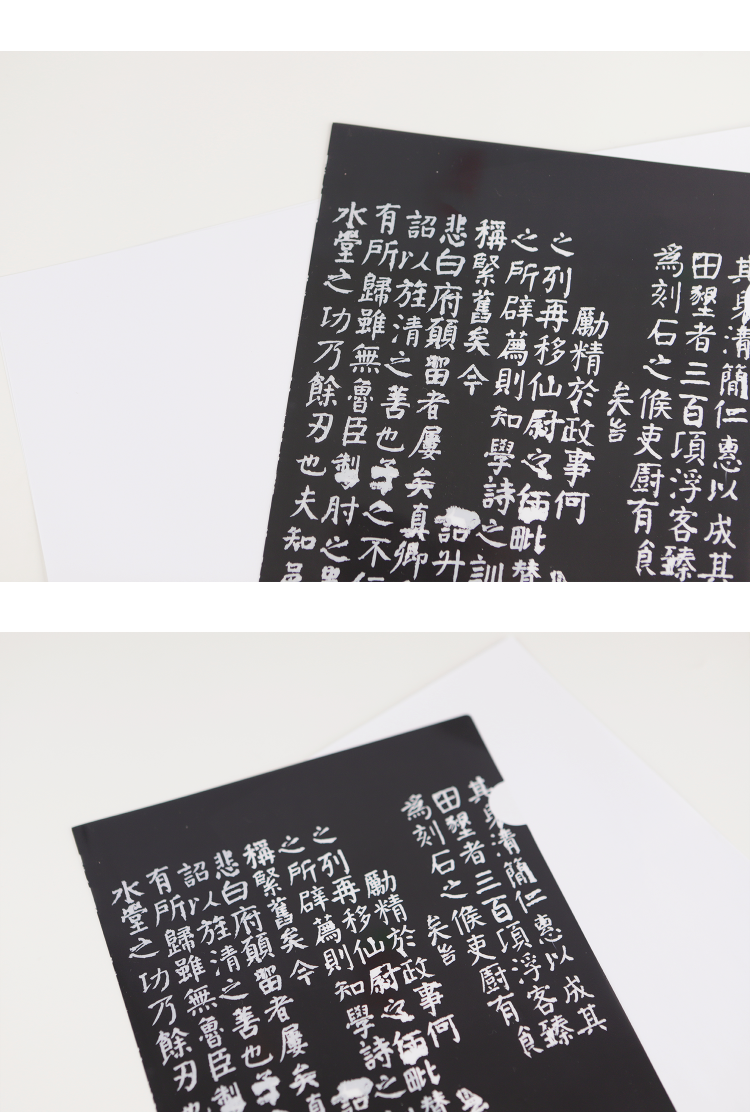 其身清簡仁惠以成其
田墾者三百頃浮客臻
為刻石之候吏廚有食
矣
勵精於政事何
之列再移仙尉之毗替
之所辟薦則知學詩之訓
稱緊舊矣今詔升
悲白府願留者屢矣真卿
詔以旌清之善也之不
有所歸雖無魯臣掣肘之
水堂之功乃餘刃也夫知
其身清簡仁惠以成其
田墾者三百頃浮客臻
為刻石之候吏廚有食
矣
勵精於政事何
之列再移仙尉之毗替
之所辟薦則知學詩之
稱緊舊矣今詔
悲白府願留者屢矣真
詔以旌清之善也
有所歸雖無魯臣掣
水堂之功乃餘刃也